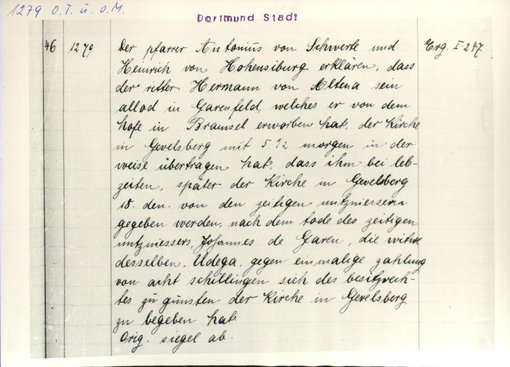 1279 O.T. u. O.M.
Dortmund Stadt
46 1279 Der pfarrer Antonius von Schwerte und Erg. I 247
Heinrich von Hohensiburg erklären, dass
der ritter Hermann von Altena sein
allod in Garenfeld, welches er von dem
hofe in Bransel erworben hat, der Kirche
in Gevelsberg mit 5 1/2 morgen in der
weise übertragen hat, dass ihm bei leb-
zeiten, später der Kirche in Gevelsberg
18 den. von den zeitigen nutzniessern
gegeben werden, nach dem tode des zeitigen
nutzniessers, Johannes de Garen, die witwe
desselben, Udega, gegen einmalige zahlung
von acht schillingen sich des besitzrech-
tes zu gunsten der Kirche in Gevelsberg
zu begeben hat.
Orig. siegel ab.